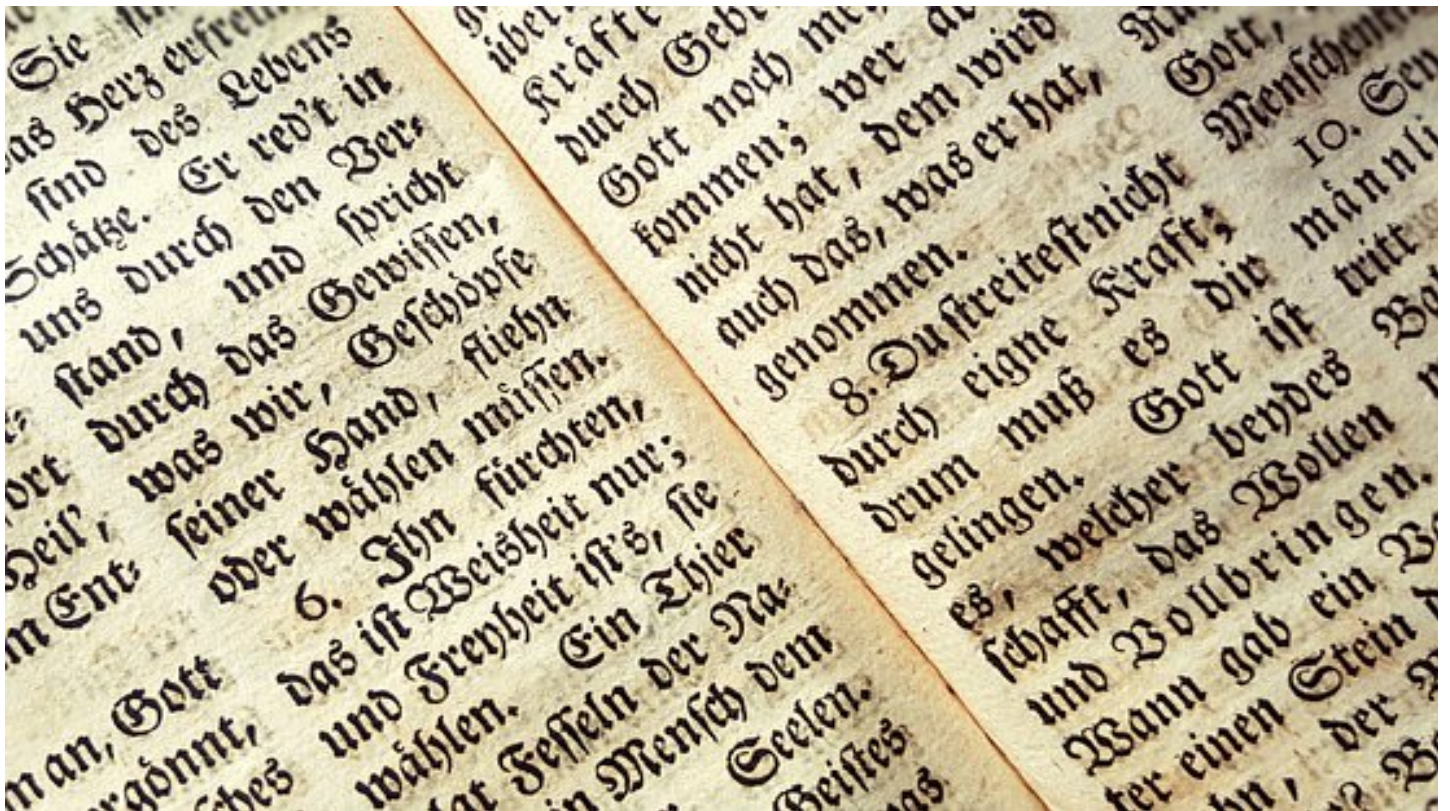 Heil',
Ent-
man, Gott
Sie
Herz
sind des Lebens
Schätze. Er red't in
uns durch den Ver-
stand, und spricht
durch das Gewissen,
was wir, Geschöpfe
seiner Hand, fliehn
oder wählen müssen.
6. Ihn fürchten,
das ist Weisheit nur;
und Freyheit ist's, sie
wählen. Ein Thier
Fesseln der Na-
Mensch dem
Seelen.
Geistes
Kräfte
durch
Gott noch
kommen; wer
nicht hat, dem wird
auch das, was er hat,
genommen.
8. Du streitest nicht
durch eigne Kraft;
drum muß es dir
gelingen. Gott ist
es, welcher beydes
schafft, das Wollen
und Vollbringen.
Wann gab ein
einen Stein
der
Gott,
10.
tritt